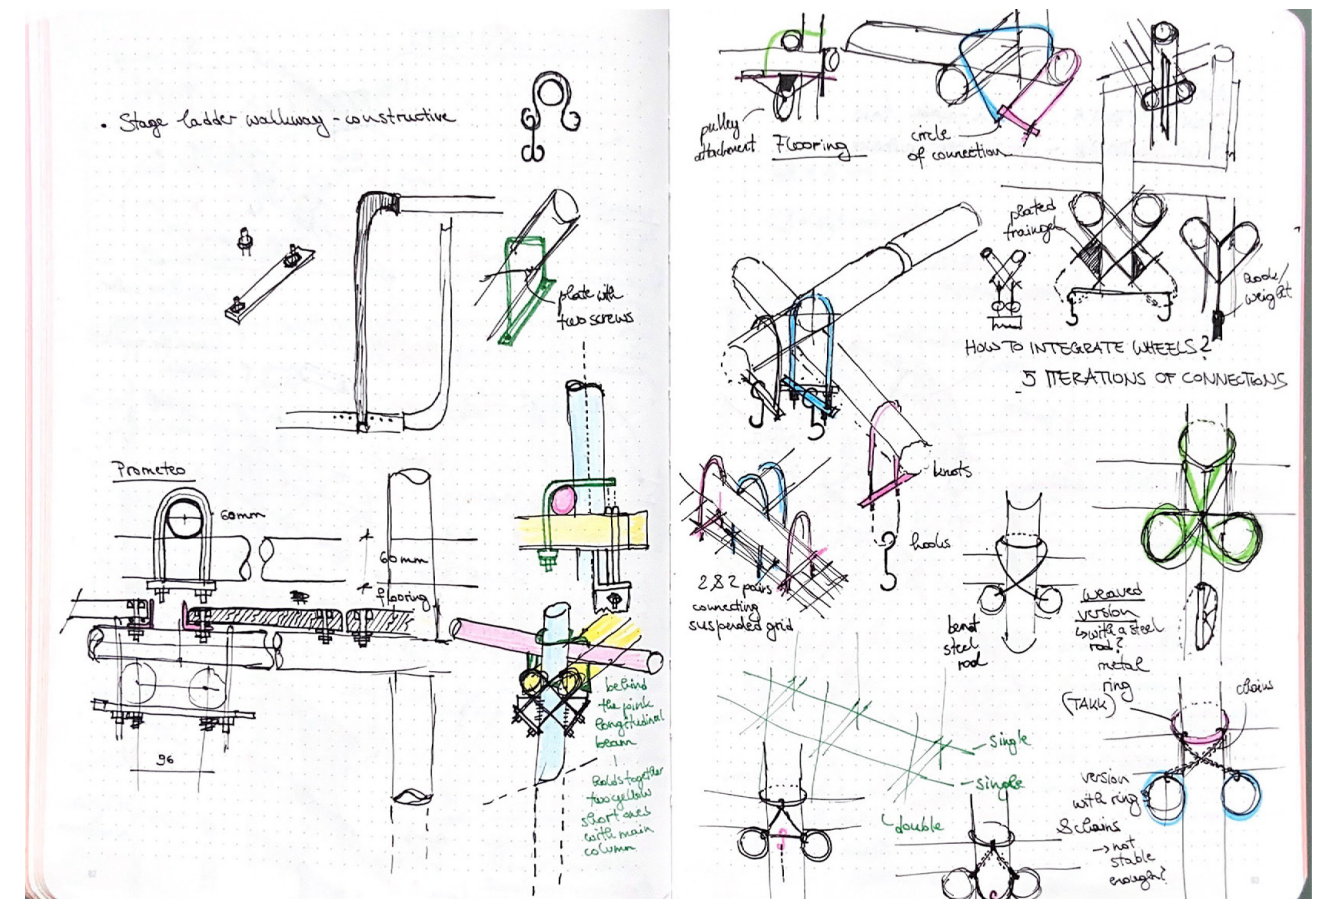 • Stage ladder walkway - constructive
plate with
two screws
Prometeo
60mm
60mm
flooring
96
behind
the pink
longitudinal
beam
holds together
two yellow
short ones
with main
column
82
pulley
attachment
Flooring
circle
of connection
plated
hook/
weight
HOW TO INTEGRATE WHEELS?
5 ITERATIONS OF CONNECTIONS
knots
hooks
2 & 2 pairs
connecting
suspended grid
steel
rod
weaved
version
↳ with a steel
rod?
metal
ring
(TAKK)
chains
version
with ring
& chains
→ not
stable
enough?
single
single
double
83